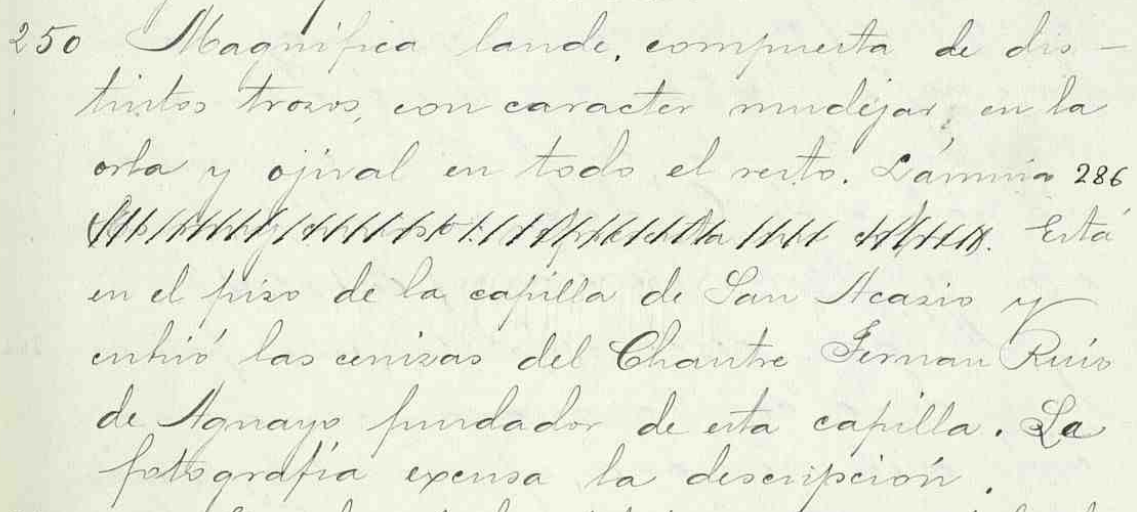 250 Magnífica laude, compuesta de dis-
tintos trozos, con caracter mudéjar, en la
orla y ojival en todo el resto. Lámina 286
Está
en el piso de la capilla de San Acasio y
cubrió las cenizas del Chantre Fernan Ruiz
de Aguayo fundador de esta capilla. La
fotografía excusa la descripción.